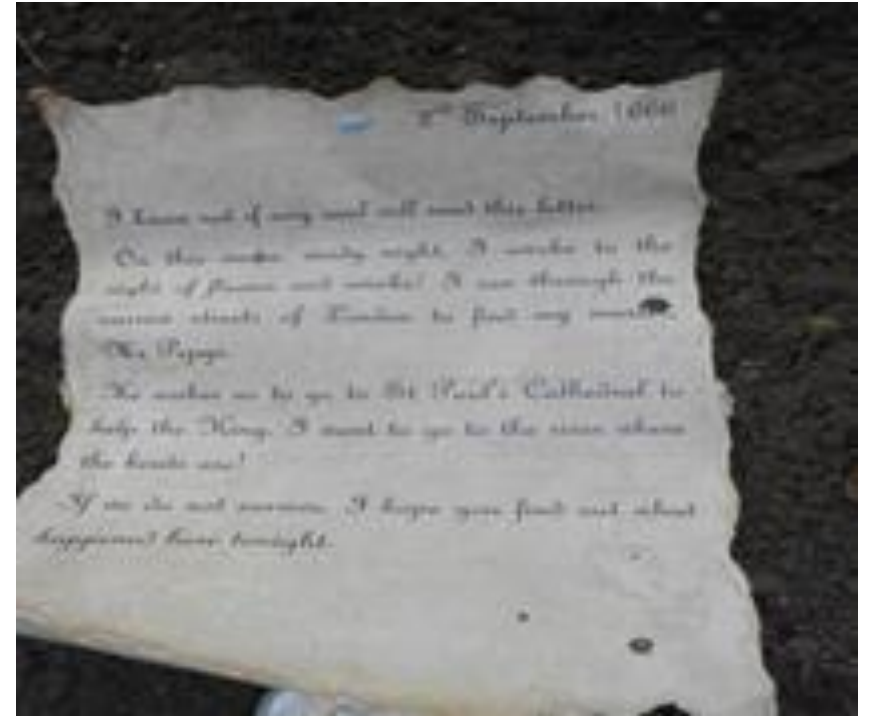 September 1666
I know not if any soul will read this letter.
On this windy night, I awoke to the
sight of flames and smoke! I ran through the
narrow streets of London to find my master,
Mr Pepys.
He wishes us to go to St Paul's Cathedral to
help the King. I want to go to the river where
the boats are!
If we do not survive, I hope you find out what
happened here tonight.